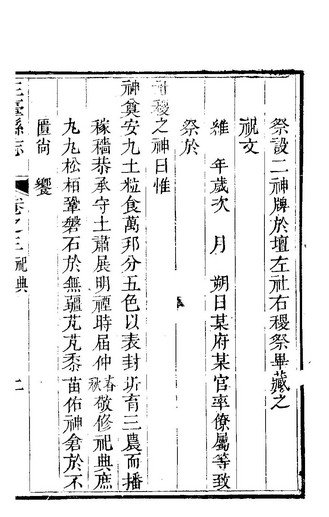 祭設二神牌於壇左社右稷祭畢藏之
祝文
維 年歲次 月 朔日某府某官率僚屬等致
祭於
稷之神曰惟
神奠安九土粒食萬邦分五色以表封圻育三農而播
稼穡恭承守土肅展明禋時屆仲春秋敬修祀典庶
丸丸松柏鞏磐石於無疆芃芃黍苗佑神倉於不
匱尚 饗
三臺縣志 卷之三 祀典